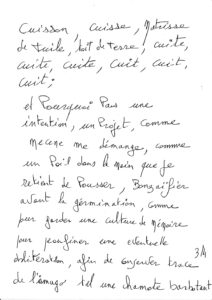 Cuisson, cuisse, Matrisse
de tuile, toit de terre, cuite,
cuite, cuite, cuit, cuit,
cuit;
et Pourquoi Pas une
intention, un Projet, comme
me démange, comme
un Poil dans la main que je
retient de Pousser, Bonzaifier
avant la germination, comme
pour garder une culture de Mémoire
pour peaufiner une éventuelle
oblitération, afin de trace
3/4
de l'imago tel une chamote barbotant